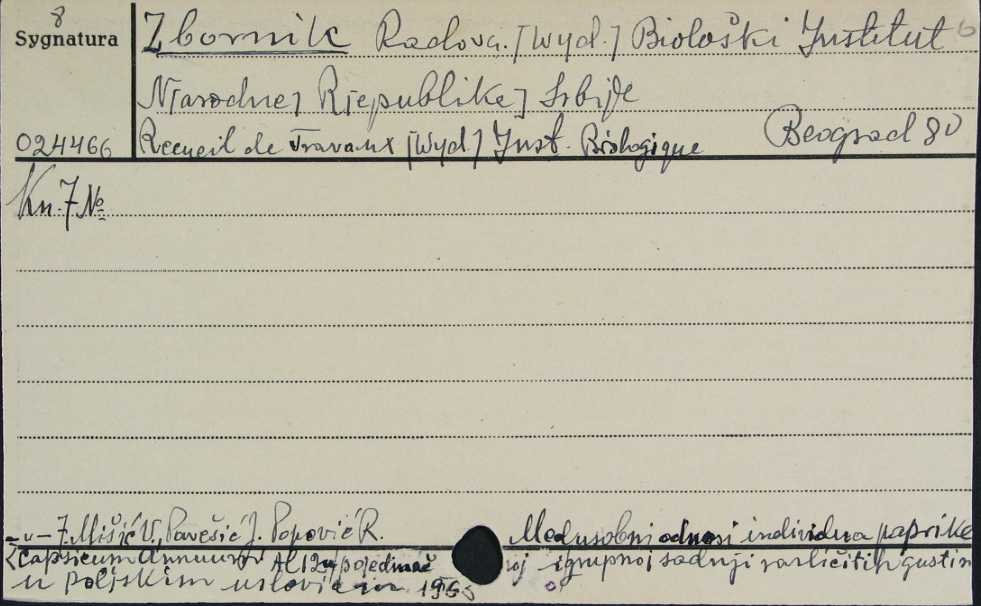 8
Sygnatura
Zbornik Radova. [Wyd.] Biološki Institut 6
Narodnej Rjepublikej Srbije
024466 Recueil de Travaux [Wyd.] Inst. Biologique Beograd 8°
Kn. 7 №
-"- 7. Mišić V., Pavešić J. Popović R. Medusobni odnosi individua paprike
(Capsicum Annuum AL) 2u pojedinač noj i grupnoj sadnji različitih gustin
u poljskim uslovicim 1965